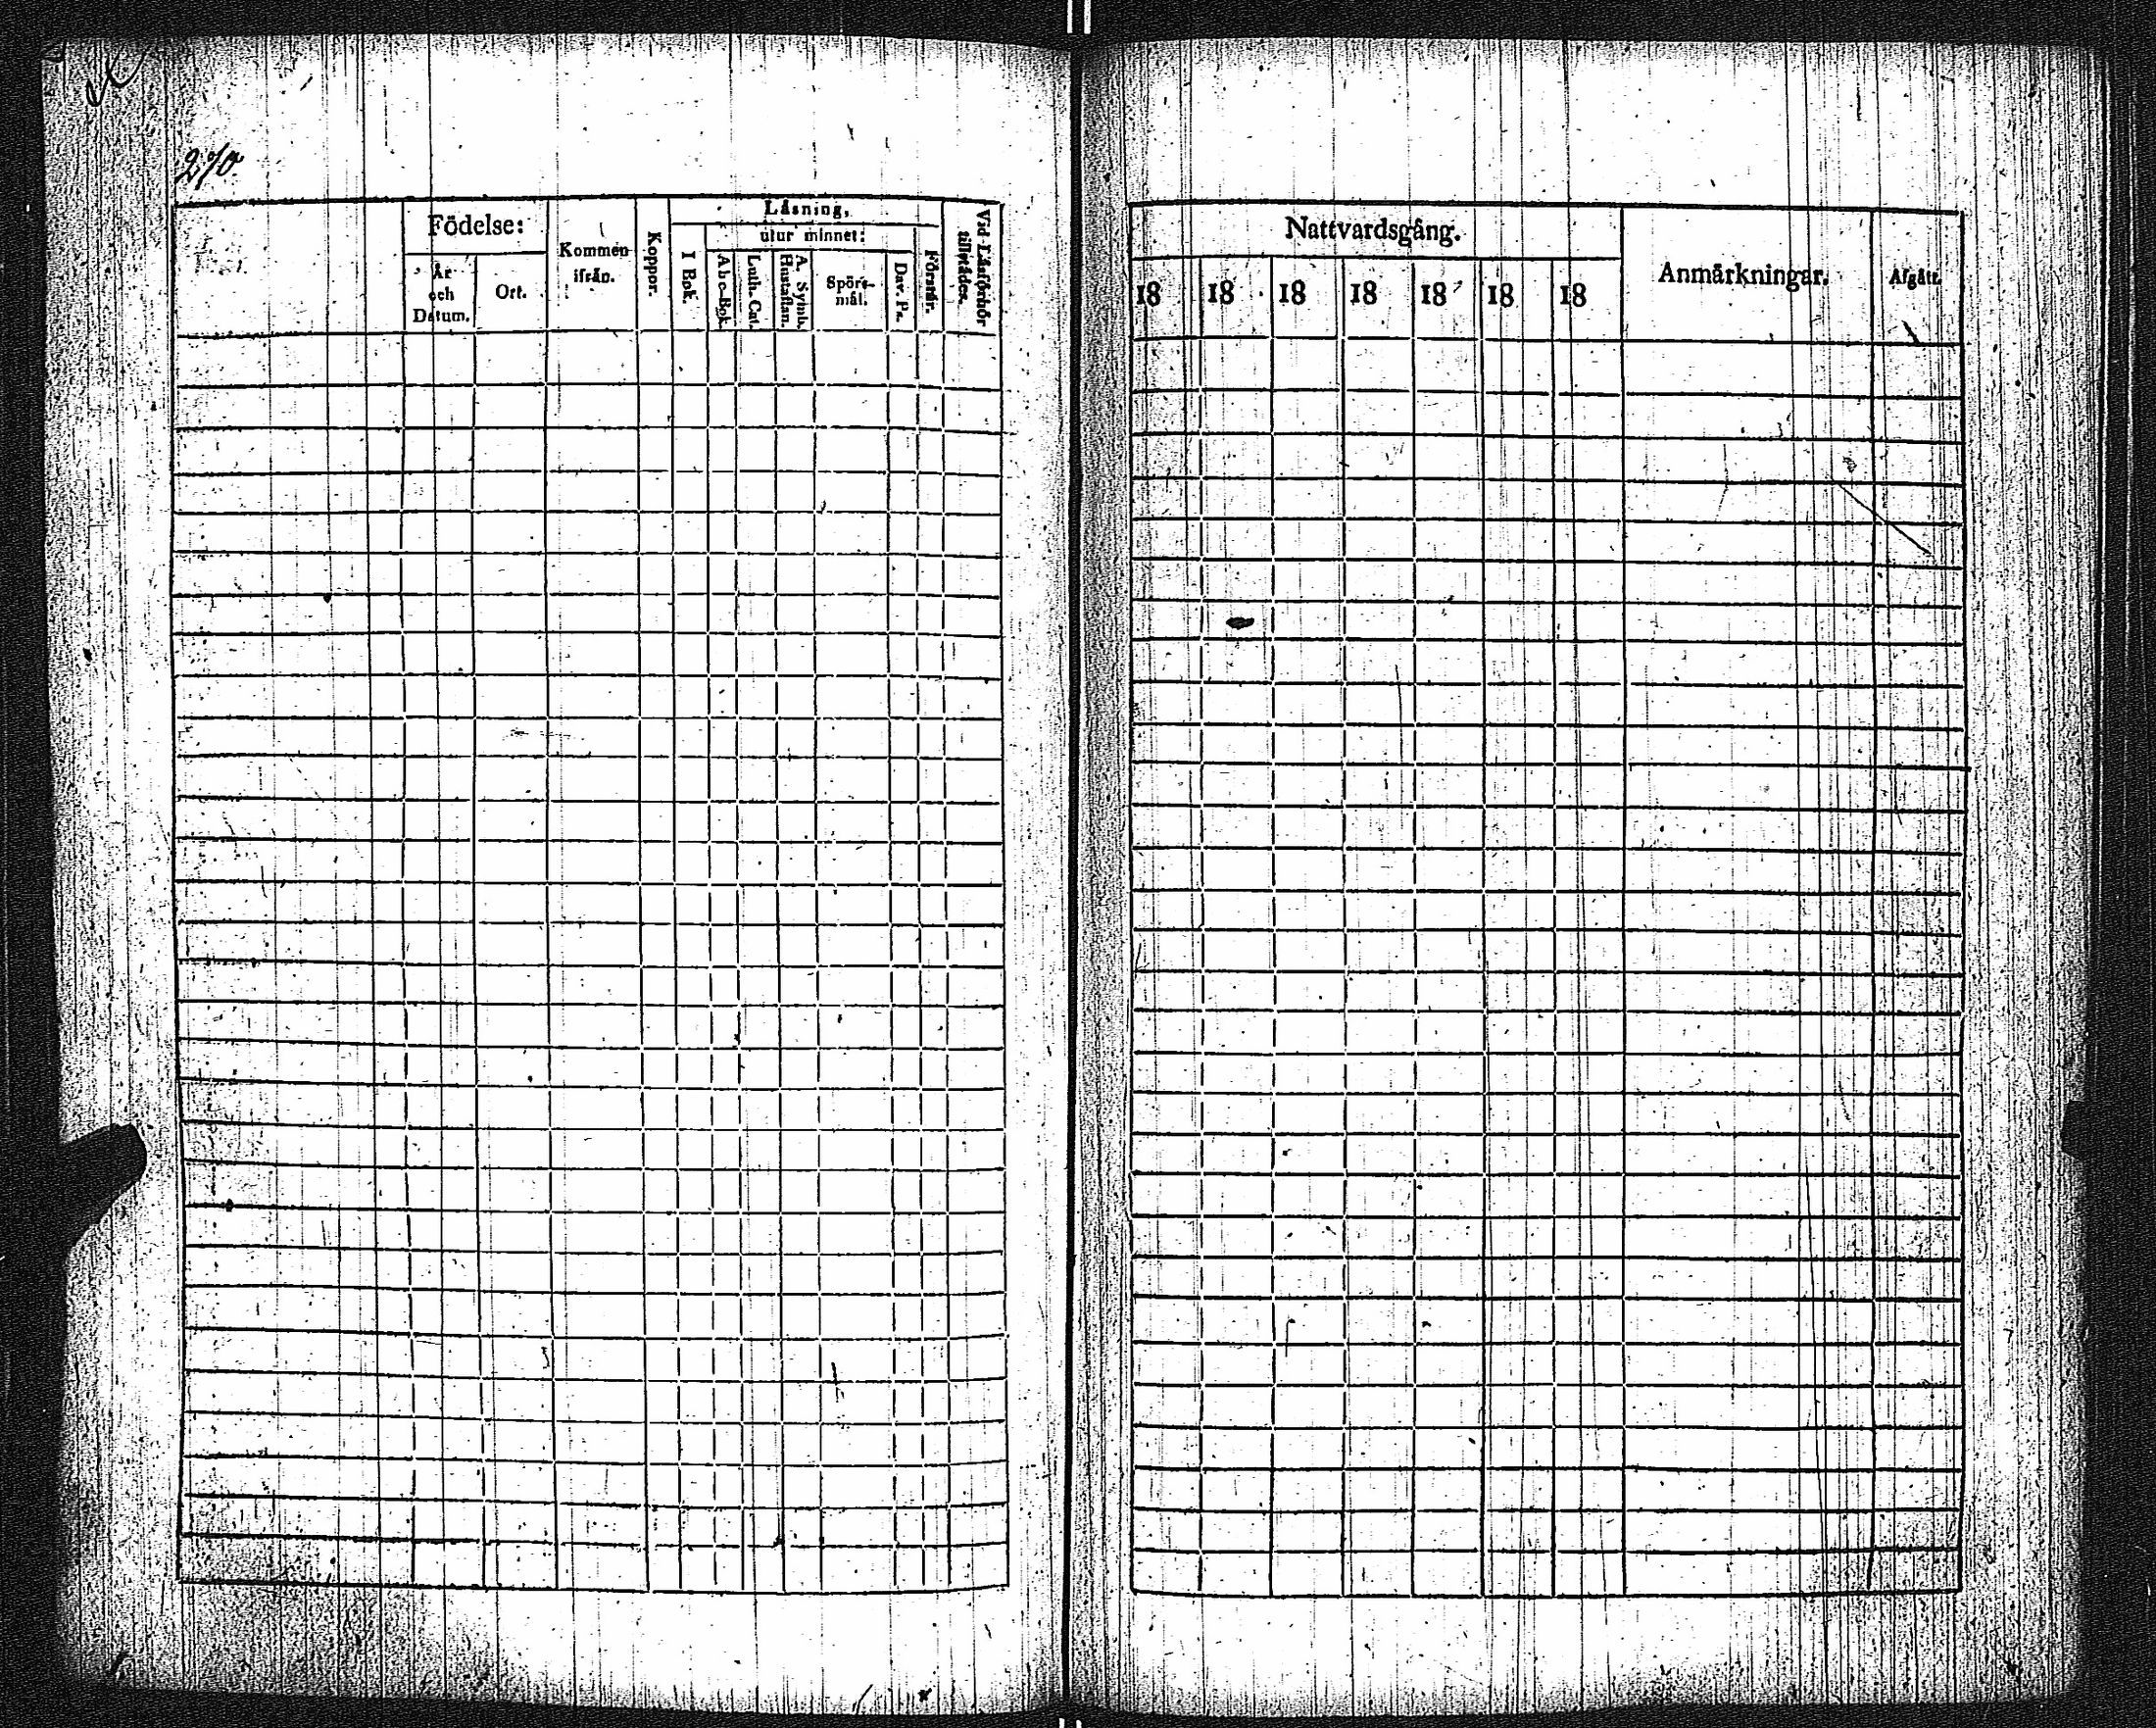 270
Födelse:
År och Datum.
Ort.
Kommen ifrån.
Koppor.
Läsning,
utur minnet:
I Bok.
Abc-Bok.
Luth. Cat.
A. Symb. Hustaflan.
Spörsmål.
Dav. Ps.
Förstår.
Vid Läsförhör tillstädes.
Nattvardsgång.
18 18 18 18 18 18 18
Anmärkningar.
Afgått.